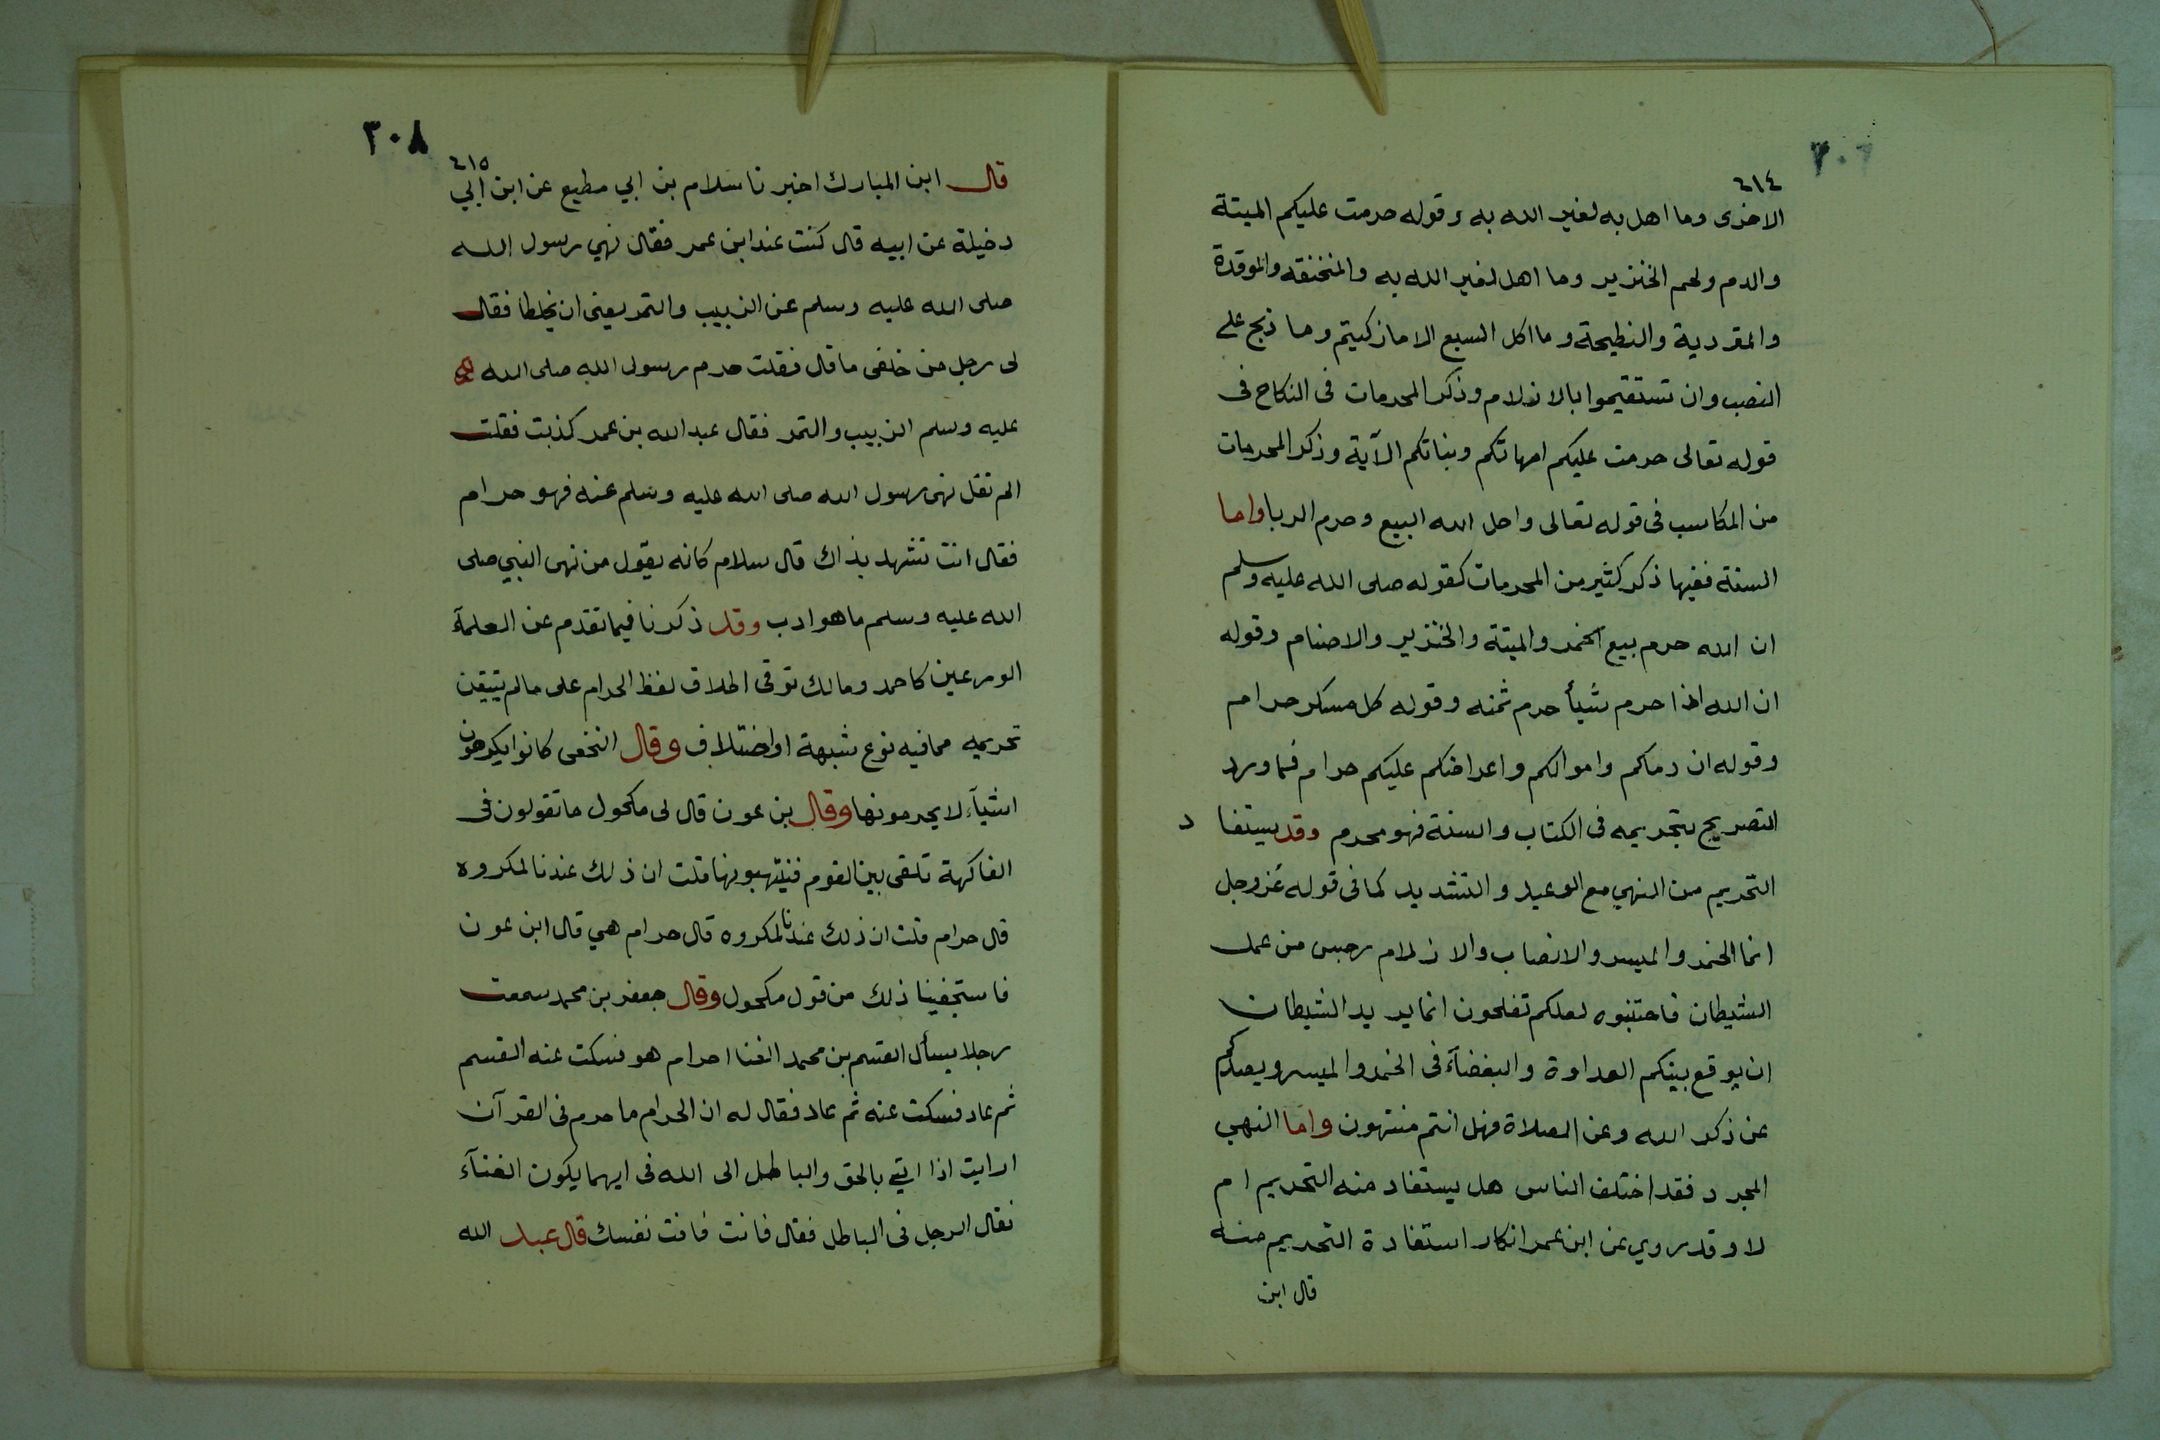 ٣٠٦
٤١٤
الاخرى وما اهل به لغير الله به وقوله حرمت عليكم الميتة
والدم ولحم الخنزير وما اهل لغير الله به والمنخنقه والموقدة
والمتردية والنطيحة وما اكل السبع الا ما ذكيتم وما ذبح على
النصب وان تستقيموا بالازلام وذكر المحرمات فى النكاح فى
قوله تعالى حرمت عليكم امهاتكم وبناتكم الآية وذكر المحرمات
من المكاسب فى قوله تعالى واحل الله البيع وحرم الربا واما
السنة ففيها ذكر كثير من المحرمات كقوله صلى الله عليه وسلم
ان الله حرم بيع الخمر والميتة والخنزير والاصنام وقوله
ان الله اذا حرم شيأ حرم ثمنه وقوله كل مسكر حرام
وقوله ان دمكم واموالكم واعراضكم عليكم حرام فما ورد
التصريح بتحريمه فى الكتاب والسنة فهو محرم وقد يستفا د
التحريم من النهي مع الوعيد والتشديد كما فى قوله عز وجل
انما الخمر والميسر والانصاب والازلام رجس من عمل
الشيطان فاجتنبوه لعلكم تفلحون انما يريد الشيطان
ان يوقع بينكم العداوة والبغضآء فى الخمر والميسر ويصدكم
عن ذكر الله وعن الصلاة فهل انتم منتهون واما النهي
المجرد فقد اختلف الناس هل يستفاد منه التحريم ام
لا وقد روي عن ابن عمر انكار استفادة التحريم منه
قال ابن
٣٠٨
٤١٥
قال ابن المبارك اخبرنا سلام بن ابي مطيع عن ابن ابي
دخيلة عن ابيه قال كنت عند ابن عمر فقال نهي رسول الله
صلى الله عليه وسلم عن الزبيب والتمر يعنى ان يخلطا فقال
لى رجل من خلفى ما قال فقلت حرم رسول الله صلى الله
عليه وسلم الزبيب والتمر فقال عبد الله بن عمر كذبت فقلت
الم تقل نهى رسول الله صلى الله عليه وسلم عنه فهو حرام
فقال انت تشهد بذاك قال سلام كانه يقول من نهى النبي صلى
الله عليه وسلم ما هو ادب وقد ذكرنا فيما تقدم عن العلمآء
الورعين كاحمد ومالك توقى اطلاق لفظ الحرام على ما لم يتيقن
تحريمه مما فيه نوع شبهة او اختلاف وقال النخعى كانوا يكرهون
اشيآء لا يحرمونها وقال بن عون قال لى مكحول ما تقولون فى
الفاكهة تلقى بين القوم فينتهبونها قلت ان ذلك عندنا لمكروه
قال حرام قلت ان ذلك عندنا لمكروه قال حرام هي قال ابن عون
فاستجفينا ذلك من قول مكحول وقال جعفر بن محمد سمعت
رجلا يسأل القسم بن محمد الغنا احرام هو فسكت عنه القسم
ثم عاد فسكت عنه ثم عاد فقال له ان الحرام ما حرم فى القرآن
ارايت اذا اتي بالحق والباطل الى الله فى ايهما يكون الغنآء
فقال الرجل فى الباطل فقال فانت فافت نفسك قال عبد الله